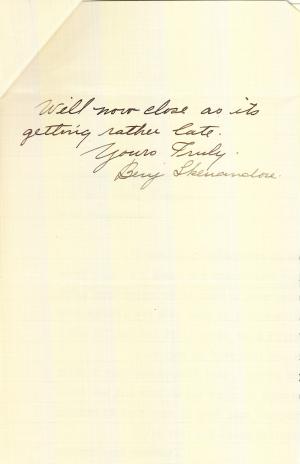 Will now close as its
getting rather late.
Yours Truly.
Benj Skenandore.